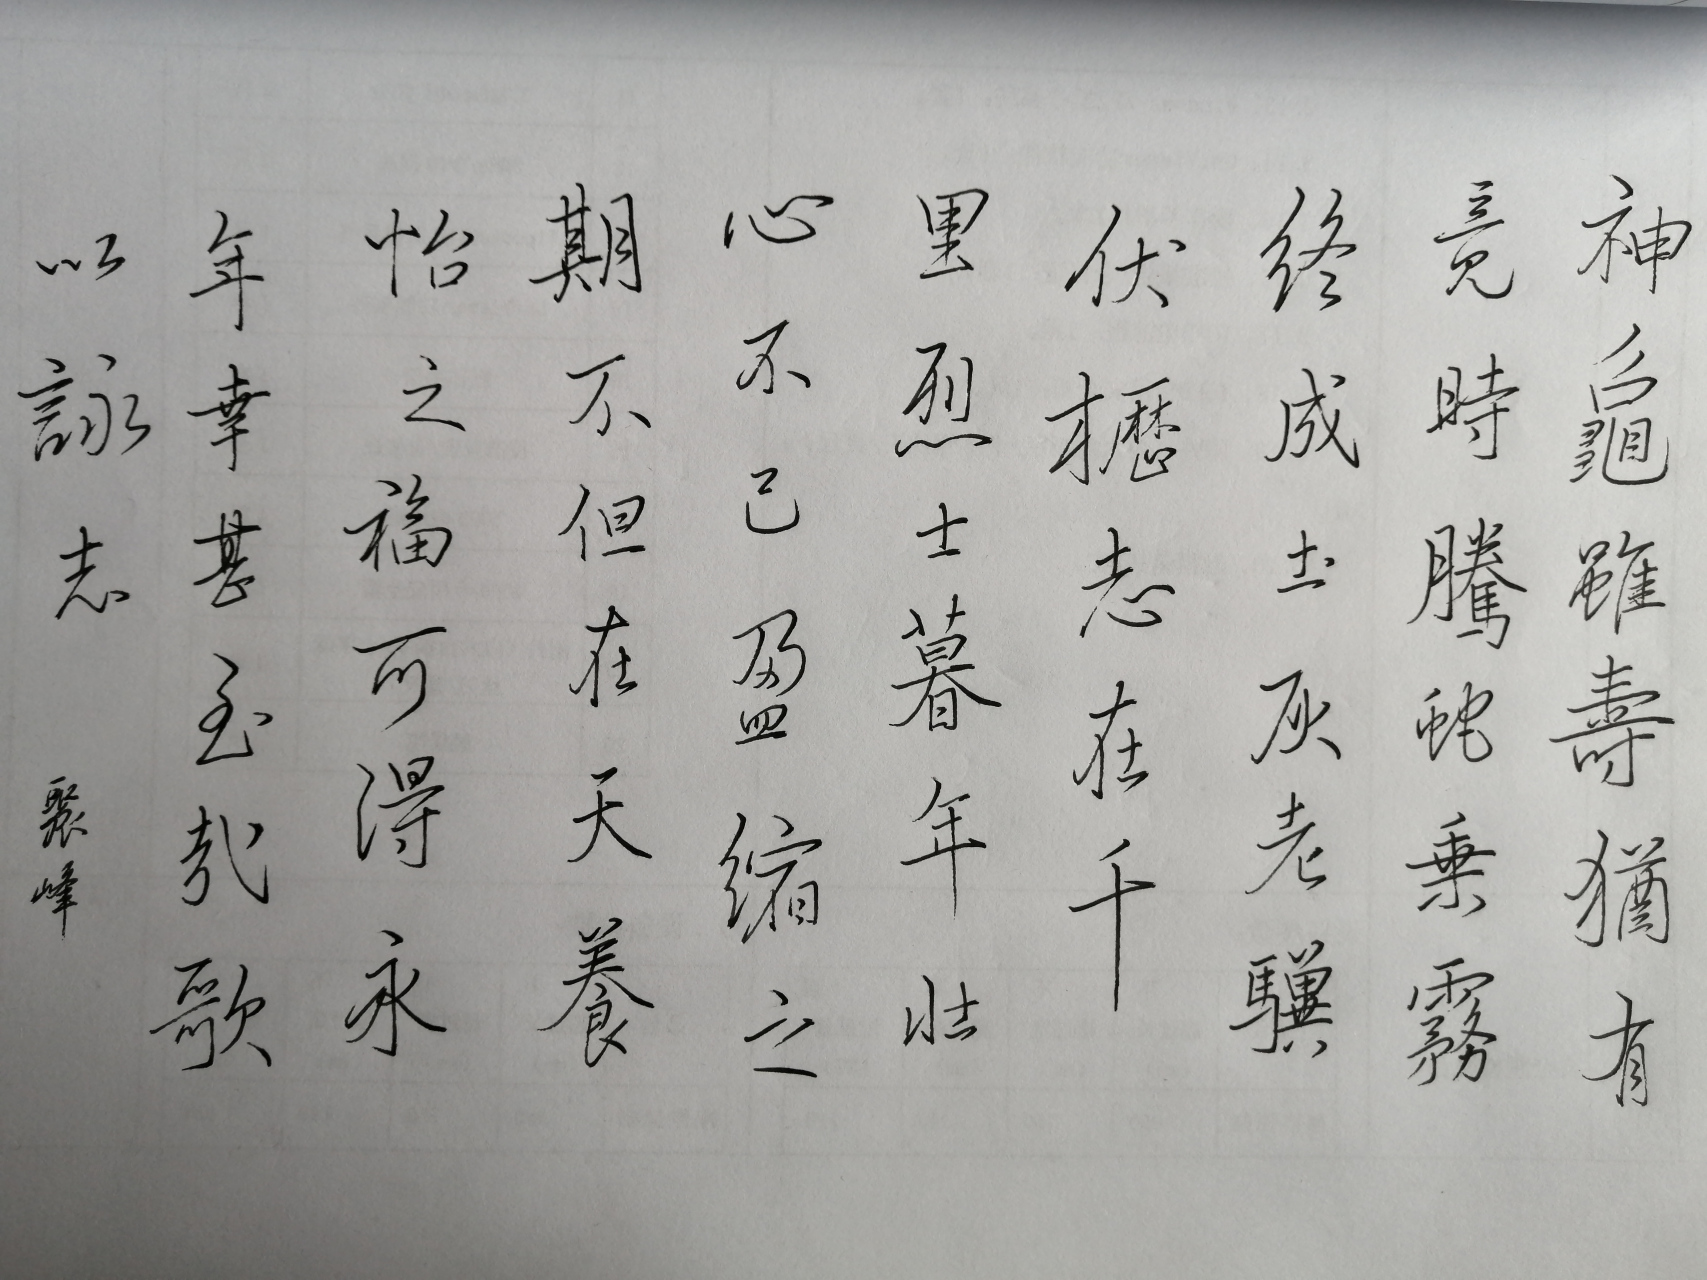 神龜雖壽猶有
竟時騰蛇乗霧
終成土灰老驥
伏櫪志在千
里烈士暮年壯
心不已盈縮之
期不但在天養
怡之福可得永
年幸甚至哉歌
以詠志
聚峰